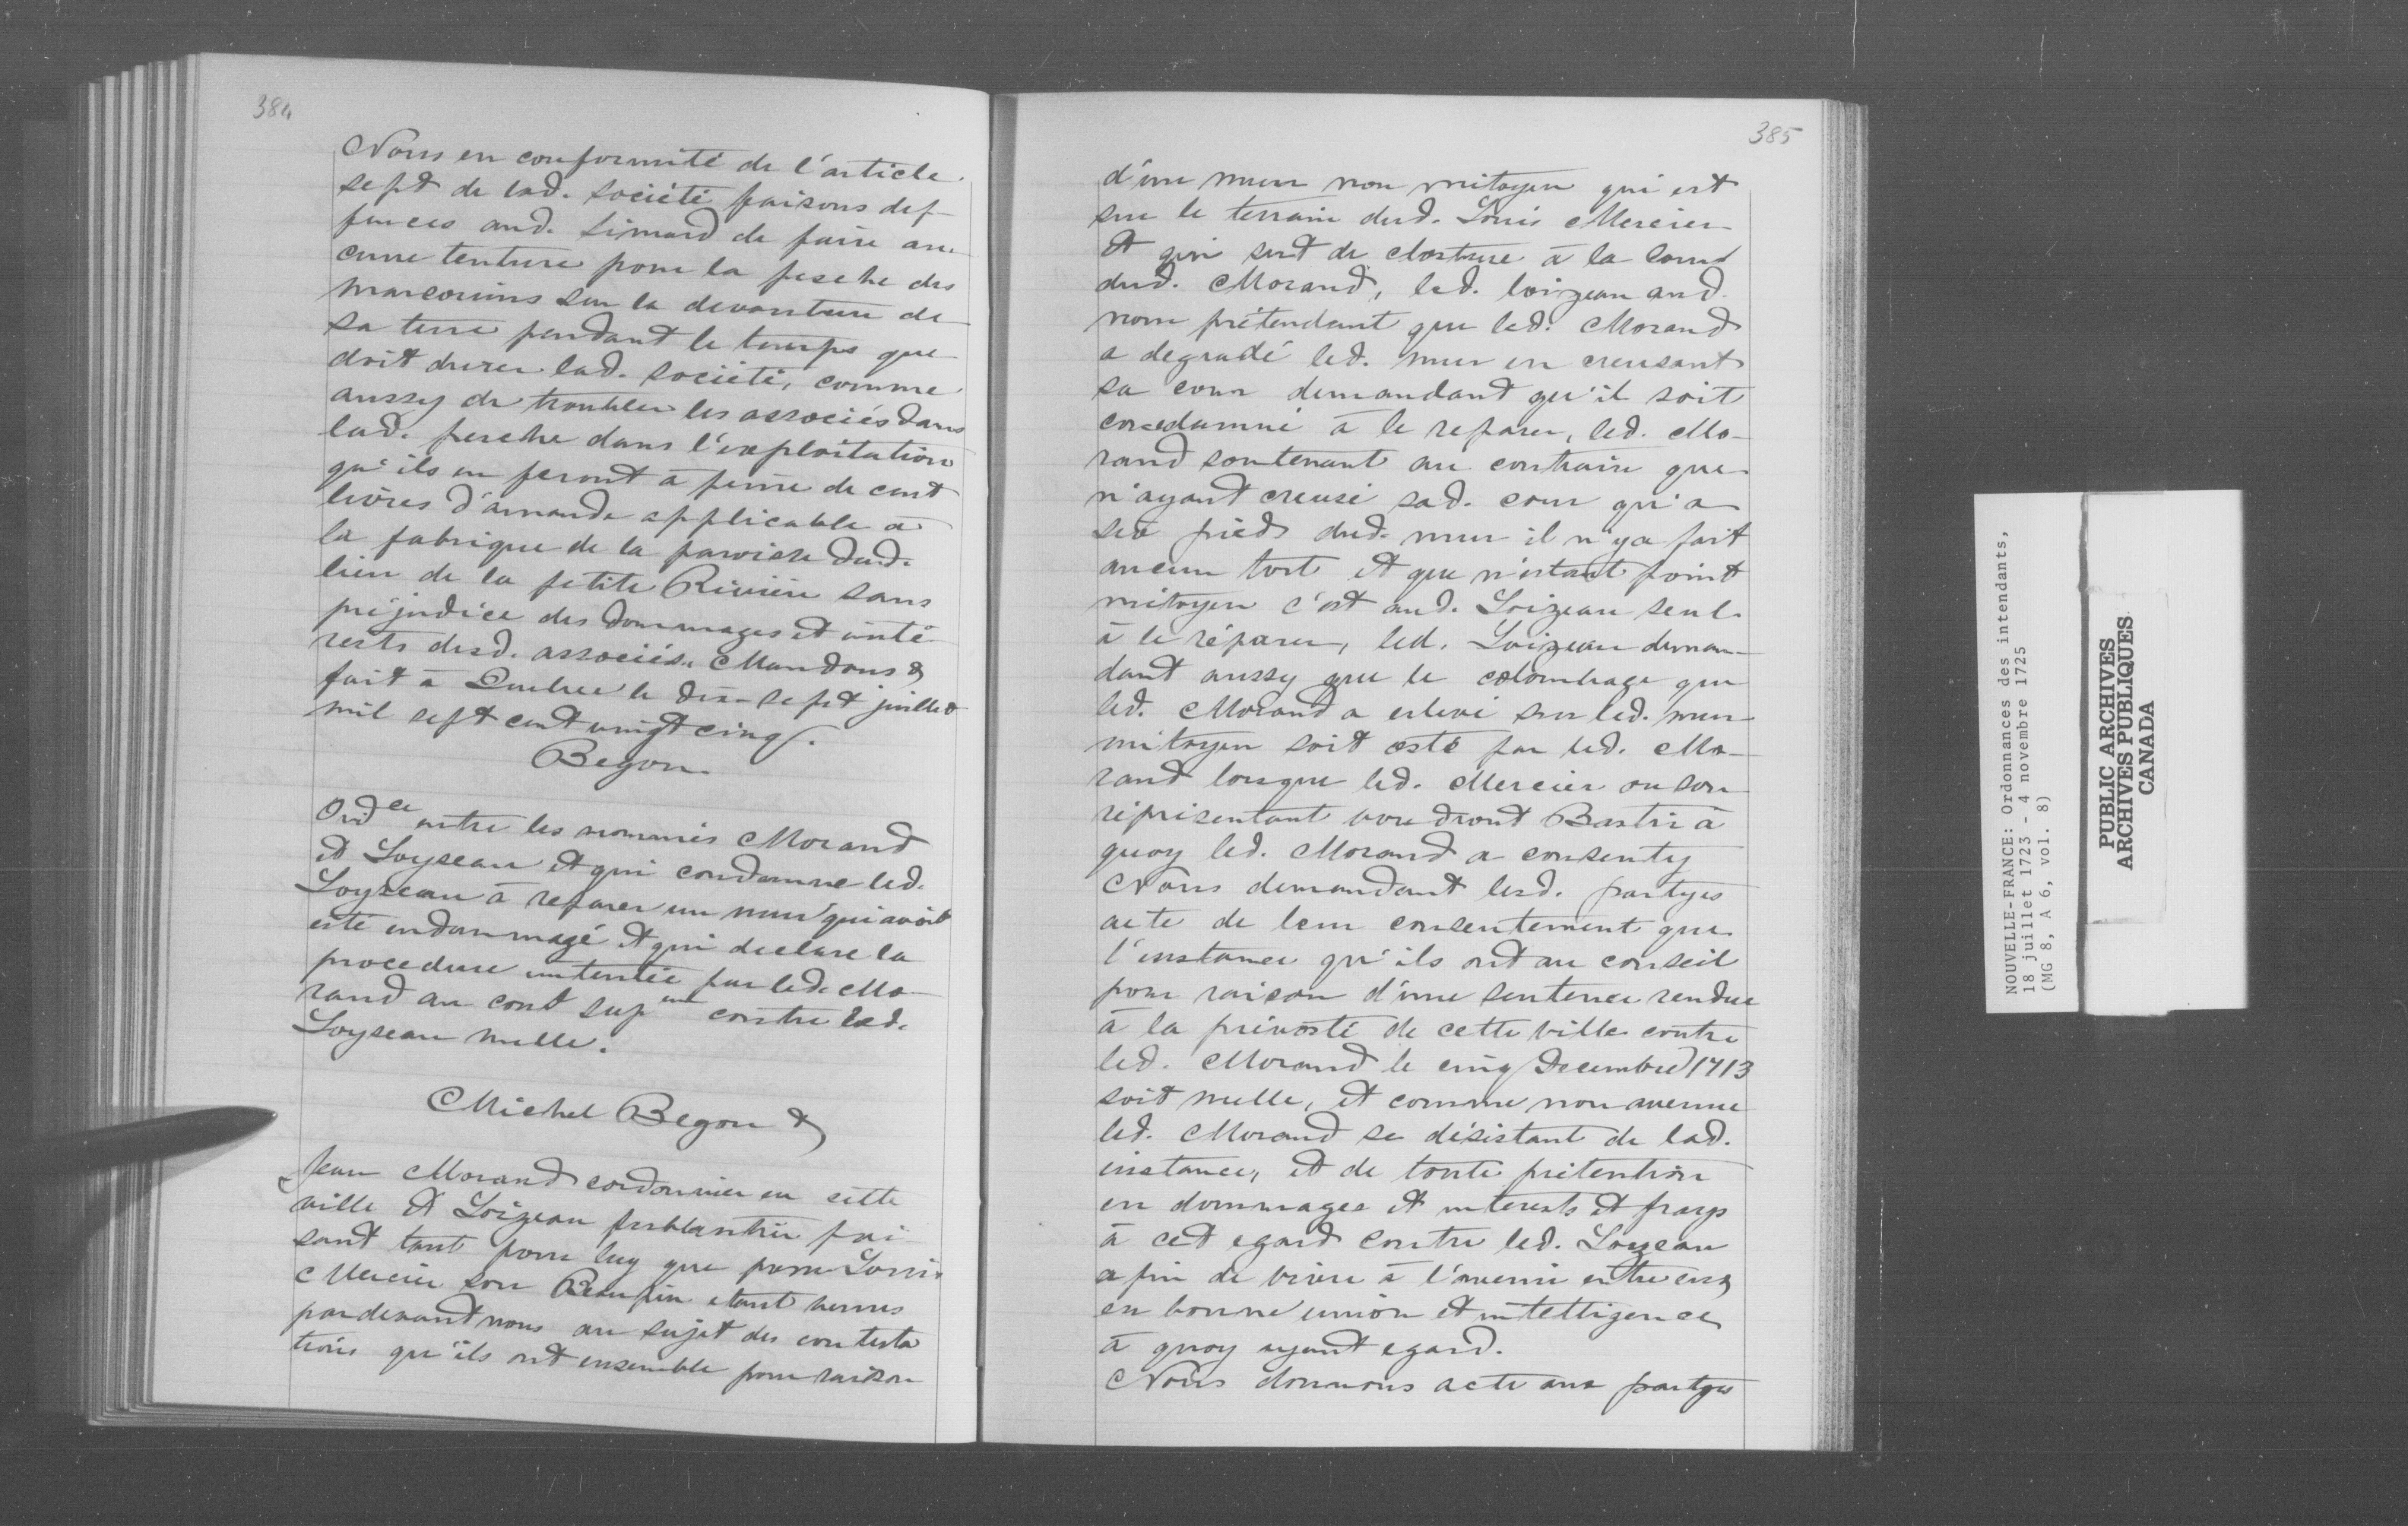 384
Nous en conformité de l'article
sept de lad. société faisons def-
fences aud. Simard de faire au-
cune tenture pour la pesche des
marsouins sur la devanture de
sa terre pendant le temps que
doit durer lad. société, comme
aussy de troubler les associés dans
lad. pesche dans l'exploitation
qu'ils en feront à peine de cent
livres d'amande applicable à
la fabrique de la paroisse dud.
lieu de la petite Rivière sans
préjudice des dommages et inté-
rests desd. associés. Mandons &
fait à Quebec le dix-sept juillet
mil sept cent vingt cinq.
Begon
Ordce entre les nommés Morand
et Loyseau et qui condamne led.
Loyseau à reparer un mur qui avoit
esté endommagé et qui declare la
procedure intentée par led. Mo-
rand au cont supeur contre led.
Loyseau nulle.
Michel Begon &
Jean Morand cordonnier en cette
ville et Loizeau ferblantier fai-
sant tant pour luy que pour Louis
Mercier son Beaupin etant venus
pardevant nous au sujet des contesta
tions qu'ils ont ensemble pour raison
385
d'un mur non mitoyen qui est
sur le terrain dud. Louis Mercier
et qui sert de closture à la cour
dud. Morand, led. loizeau aud.
nom prétendant que led. Morand
a degradé led. mur en creusant
sa cour demandant qu'il soit
condamné à le reparer, led. Mo-
rand soutenant au contraire que
n'ayant creusé sad. cour qu'a
six pieds dud. mur il n'y a fait
aucun tort et que n'estant point
mitoyen c'est aud. Loizeau seul
à le réparer, led. Loizeau deman-
dant aussy que le colombage que
led. Morand a eslevé sur led. mur
mitoyen soit osté par led. Mo-
rand lorsque led. Mercier ou son
représentant voudront Bastir à
quoy led. Morand a consenty
Nous demandant lesd. partyes
acte de leur consentement que
l'instance qu'ils ont au conseil
pour raison d'une sentence rendue
à la prévosté de cette ville contre
led. Morand le cinq Decembre 1713
soit nulle, et comme non avenue
led. Morand se désistant de lad.
instance, et de toute prétention
en dommages et interests et frays
à cet egard contre led. Loyzeau
afin de vivre à l'avenir entre eux
en bonne union et intelligence
à quoy ayant egard.
Nous donnons acte aux partyes
NOUVELLE-FRANCE: Ordonnances des intendants,
18 juillet 1723 - 4 novembre 1725
(MG 8, A 6, vol. 8)
PUBLIC ARCHIVES
ARCHIVES PUBLIQUES
CANADA